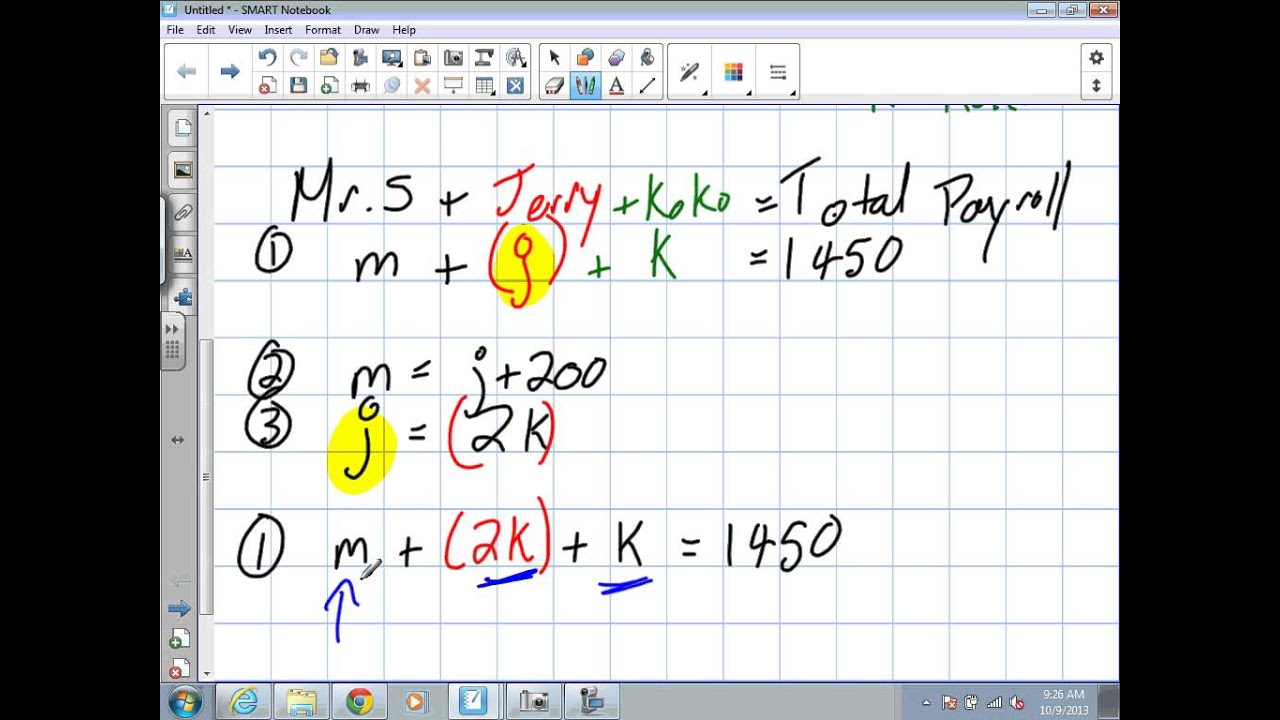 Untitled * - SMART Notebook
File Edit View Insert Format Draw Help
Mr.S + Jerry + Koko = Total Payroll
① m + (j) + K = 1450
② m = j+200
③ j = (2K)
① m + (2K) + K = 1450
9:26 AM
10/9/2013